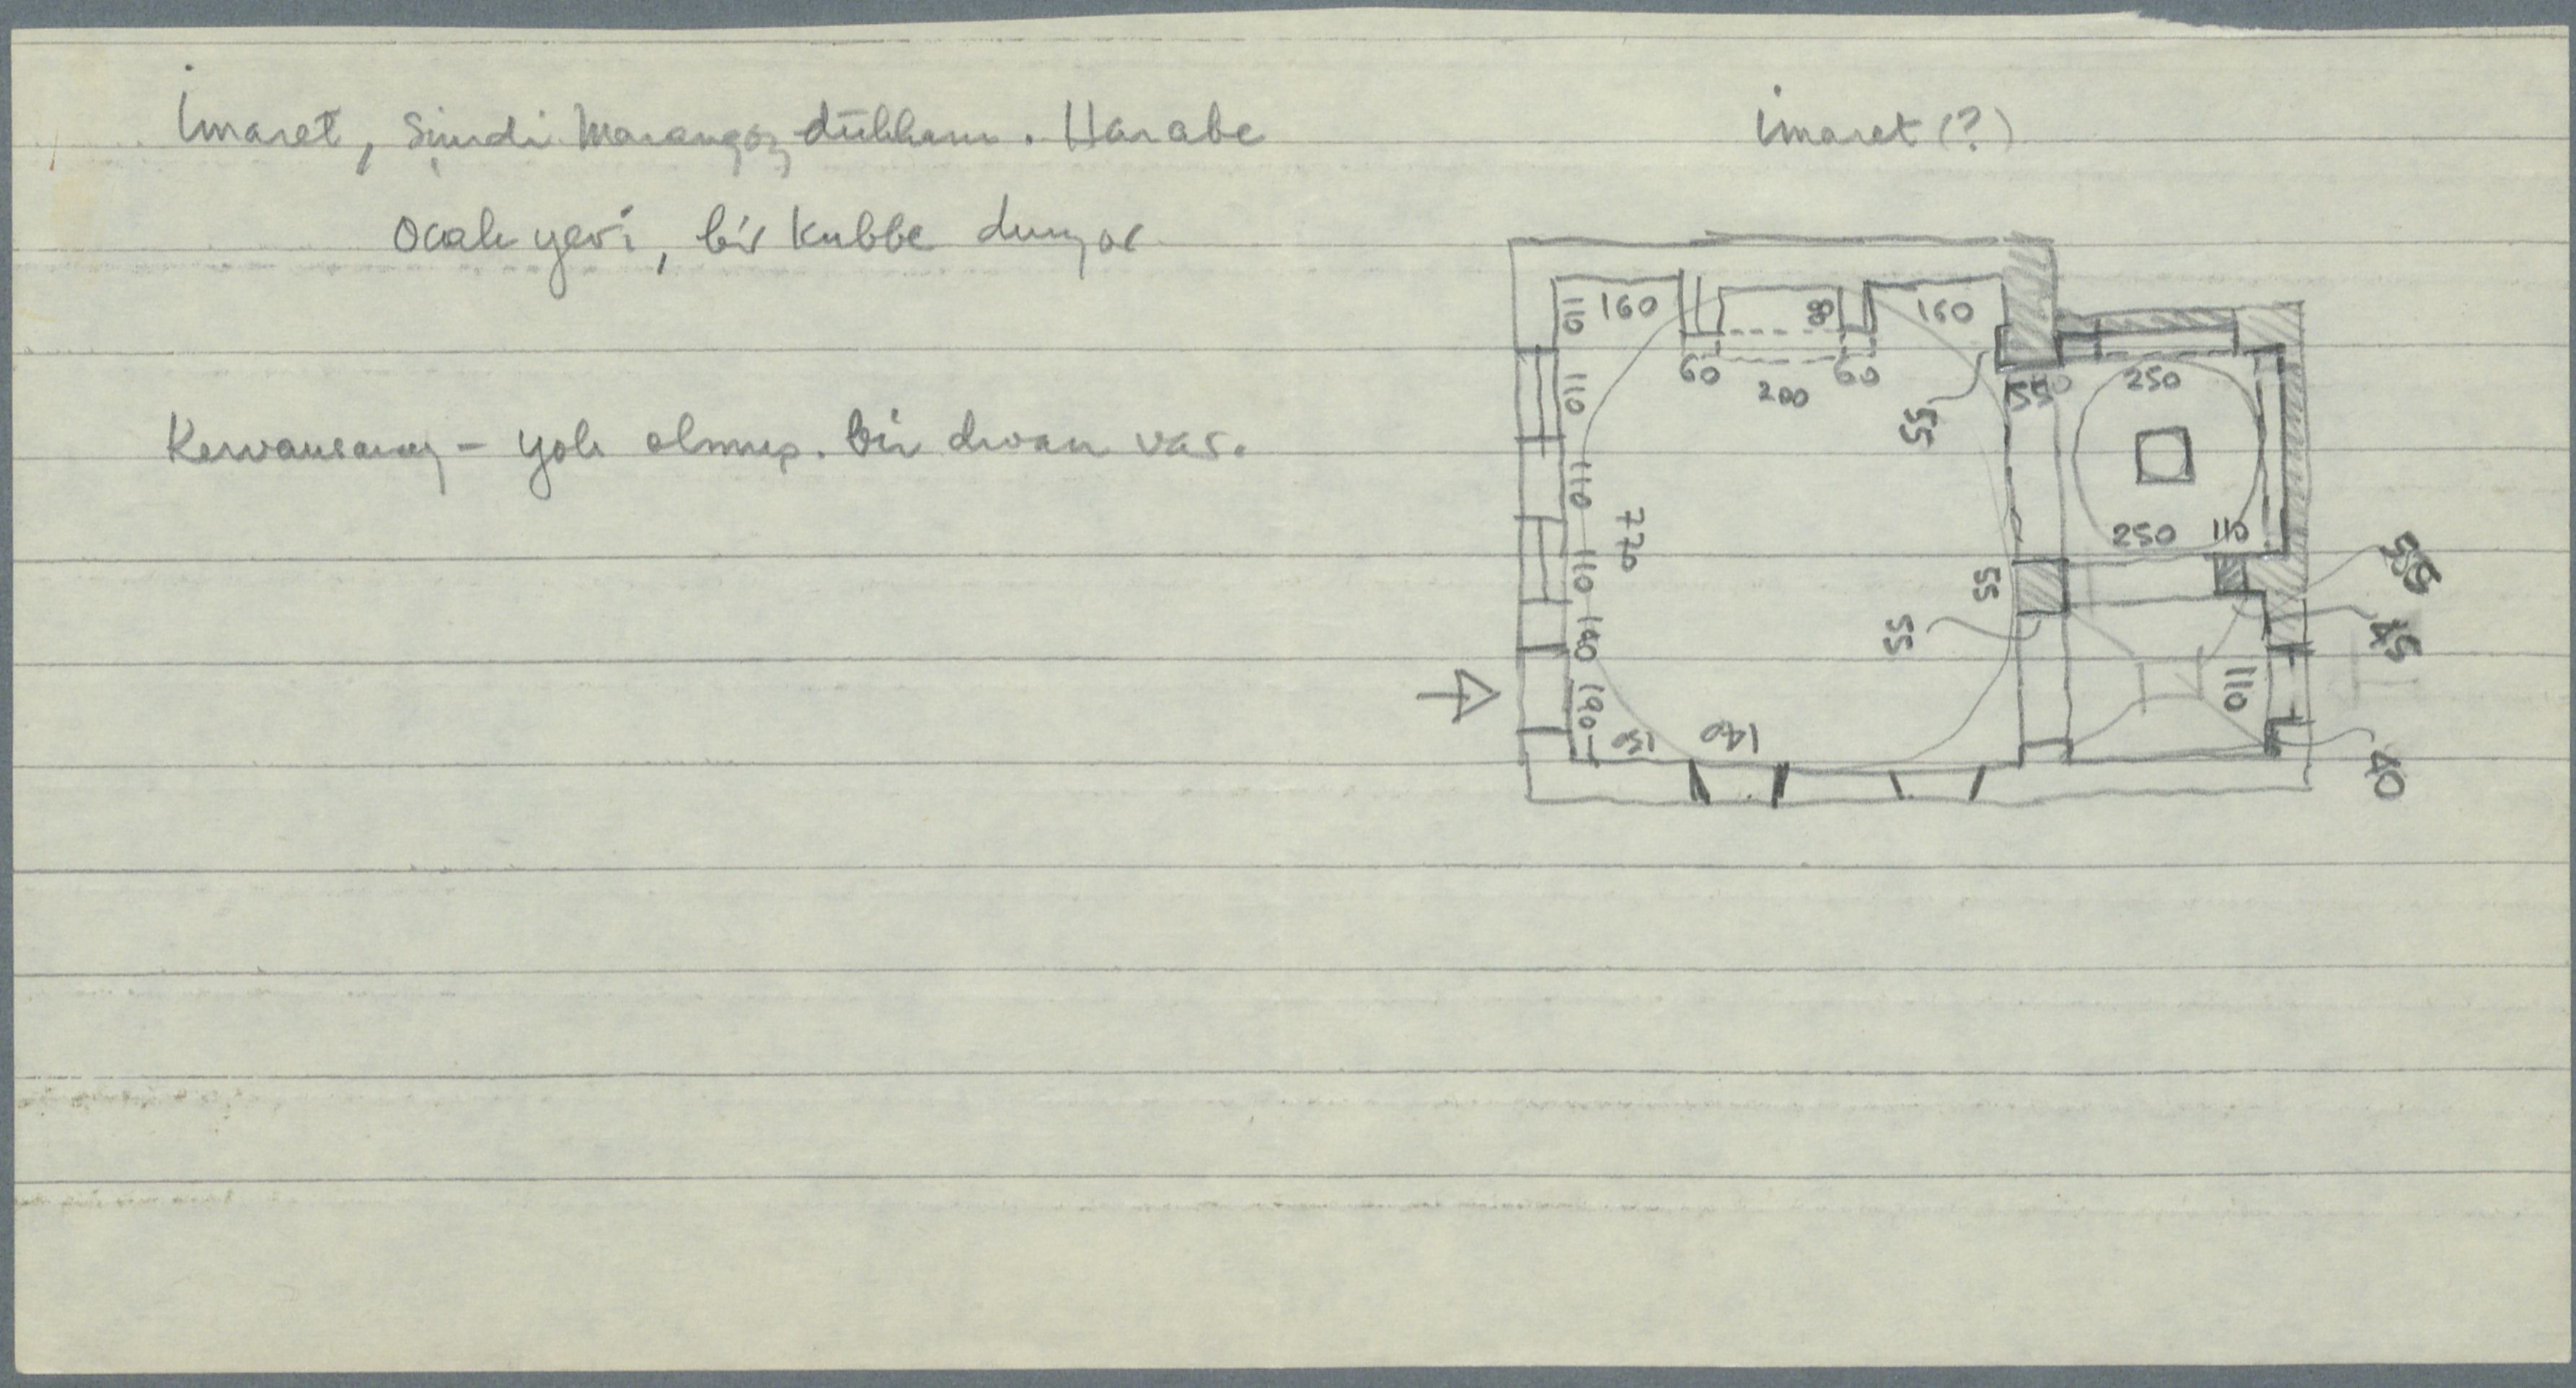 İmaret, şimdi marangoz dükkanı. Harabe
ocak yeri, bir kubbe duruyor
Kervansaray - yok olmuş. bir duvar var.
İmaret (?)
110 160 80 160
60 200 60
110
55 55 250
110
770
250 110
110 55 55
140 55 45
190 110
150 140
40